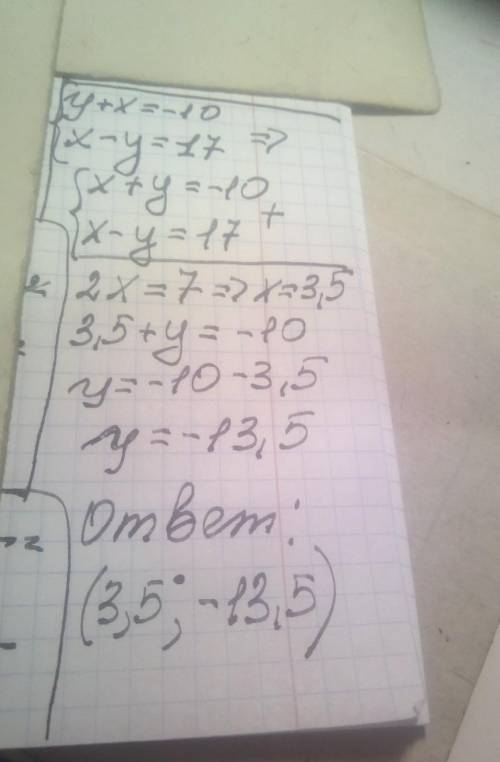 y+x=-10
x-y=17 =>
x+y=-10
+
x-y=17
2x=7=>x=3,5
3,5+y=-10
y=-10-3,5
y=-13,5
Ответ:
(3,5; -13,5)